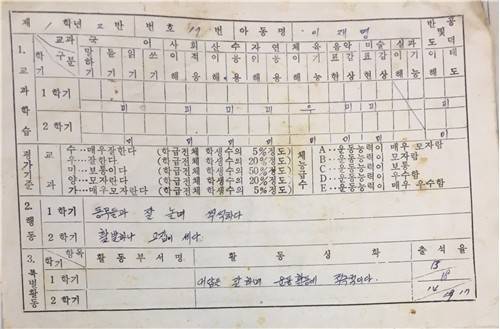 제 1 학년 2 반 번호 17 번 아동명 이재명
1. 교과학습
교과 구분 학기 국어 사회 산수 자연 체육 음악 미술 실과 반공 및 도덕
말하기 듣기 읽기 쓰기 이해 적응 이해 적용 이해 이해 기능 이해 표현 감상 표현 감상 이해 기능 이해 태도
1 학기
미 미 미 미 미 우 미 미
2 학기
평가기준
교과 체능급수
수…매우잘한다 (학급전체 학생수의 5%정도) A…운동능력이 매우 모자람
우…잘한다 (학급전체 학생수의 20%정도) B…운동능력이 모자람
미…보통이다 (학급전체 학생수의 50%정도) C…운동능력이 보통
양…모자란다 (학급전체 학생수의 20%정도) 운동능력이 우수함
가…매우모자란다 (학급전체 학생수의 5%정도) E…운동능력이 매우 우수함
2. 행동
1 학기 동무들과 잘 놀며 씩씩하다
2 학기 활발하나 고집이 세다.
3. 특별활동
항목 학기 활동부서명 활동상황 출석율
1 학기 잘 하며
2 학기